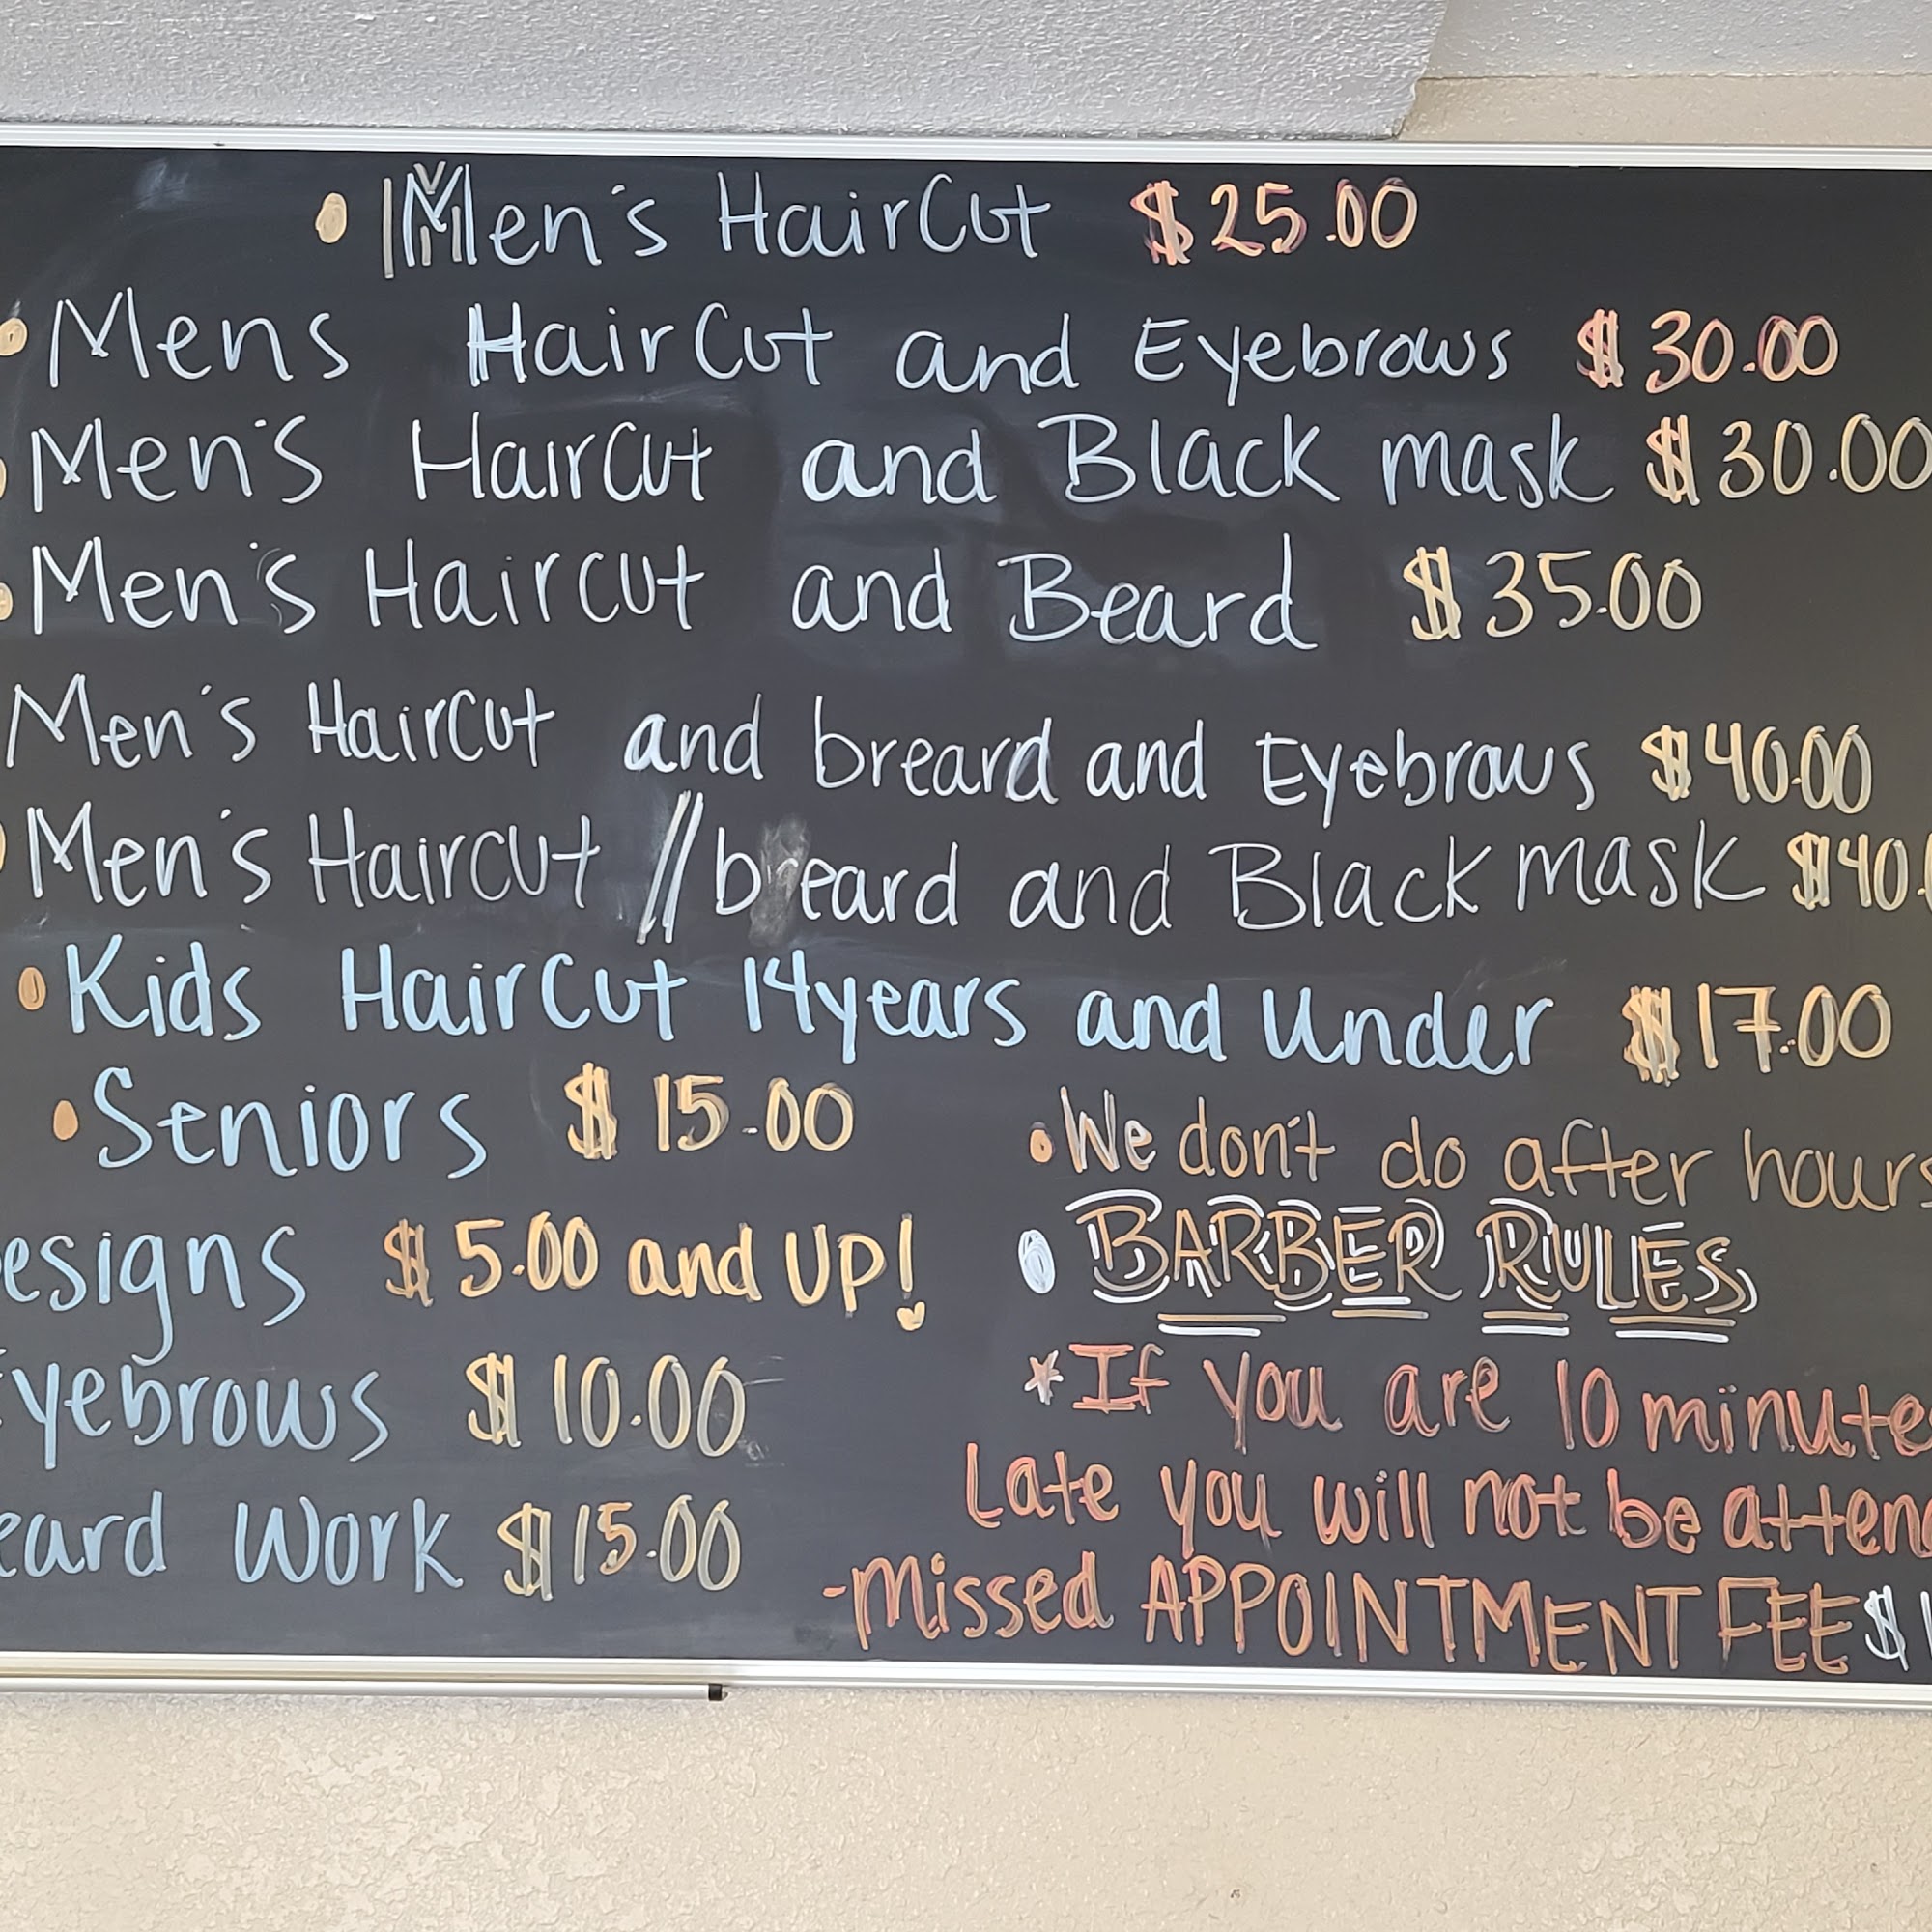 • Men's HairCut $25.00
• Mens HairCut and Eyebrows $30.00
Men's HairCut and Black mask $30.00
• Men's Haircut and Beard $35.00
Men's HairCut and breard and Eyebrows $40.00
Men's Haircut // breard and Black mask $40.
• Kids HairCut 14years and Under $17.00
• Seniors $15.00
esigns $5.00 and UP!
Eyebrows $10.00
eard Work $15.00
• We don't do after hours
• BARBER RULES
*If you are 10 minute
Late you will not be atten
-Missed APPOINTMENT FEE $1